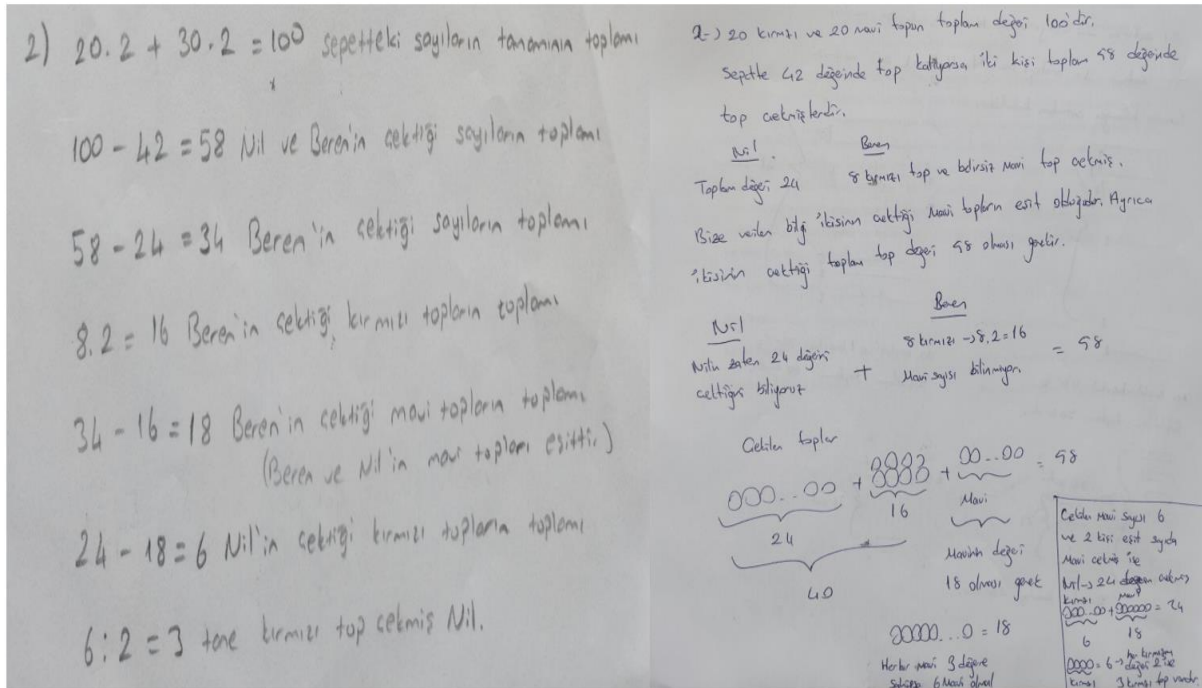 2) 20.2 + 30.2 = 100 sepetteki sayıların tamamının toplamı
100 - 42 = 58 Nil ve Beren'in çektiği sayıların toplamı
58 - 24 = 34 Beren'in çektiği sayıların toplamı
8.2 = 16 Beren'in çektiği kırmızı topların toplamı
34 - 16 = 18 Beren'in çektiği mavi topların toplamı
(Beren ve Nil'in mavi toplamı eşittir.)
24 - 18 = 6 Nil'in çektiği kırmızı topların toplamı
6 : 2 = 3 tane kırmızı top çekmiş Nil.
2-) 20 kırmızı ve 20 mavi topun toplam değeri 100'dür.
Sepette 42 değerinde top kalıyorsa iki kişi toplam 58 değerinde
top çekmişlerdir.
Nil
Beren
Toplam değeri 24
8 kırmızı top ve belirsiz mavi top çekmiş.
Bize verilen bilgi ikisinin çektiği mavi topların eşit olduğudur. Ayrıca
ikisinin çektiği toplam top değeri 58 olması gerekir.
Nil
Beren
Nilin zaten 24 değerini
çektiğini biliyoruz
+
8 kırmızı → 8.2 = 16
Mavi sayısı bilinmiyor.
= 58
Çekilen toplar
000...00 + 0000 0000 + 00...00 = 58
24
16
Mavi
40
Mavinin değeri
18 olması gerek
00000...0 = 18
Her bir mavi 3 değere
6 Mavi
Çekilen mavi sayısı 6
ve 2 kişi eşit sayıda
Mavi çekmiş ise
Nil → 24 çekmiş
kırmızı
Mavi
000...00 + 000000 = 24
6
18
0000 = 6 → her kırmızının
değeri 2 ise
kırmızı
3 kırmızı top vardır